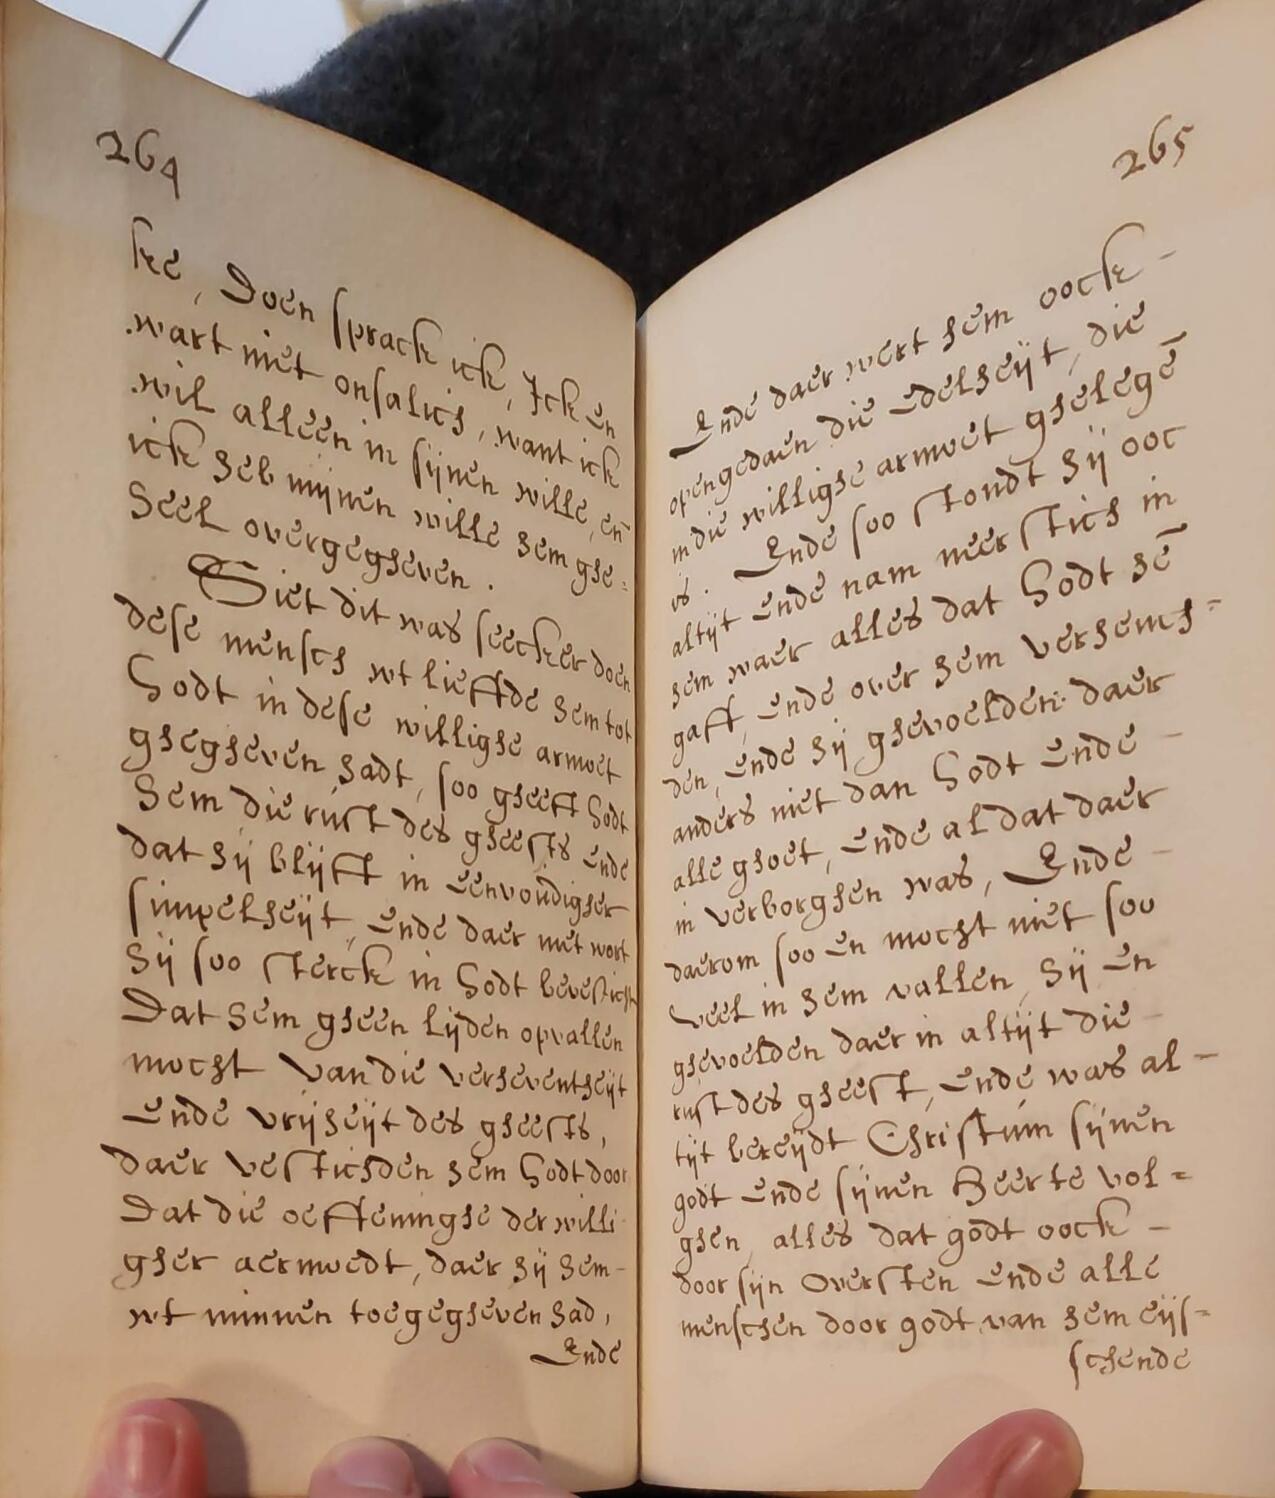 264
ke, Doen sprack ick, Ick en
wart niet onsalich, want ick
wil alleen in sijnen wille, en̄
ick heb mijnen wille hem ghe=
heel overgegheven.
Siet dit was seecker doen
dese mensch wt lieffde hem tot
Godt in dese willighe armoet
ghegheven hadt, soo gheeft Godt
hem die rust des gheests ende
dat hij blijft in eenvoudigher
simpelheijt, ende daer met wort
hij soo sterck in Godt bevesticht
Dat hem gheen lijden opvallen
mocht van die verheventheijt
ende vrijheijt des gheests,
daer vestichden hem Godt door
Dat die oeffeninghe der willi
gher aermoedt, daer hij hem-
wt minnen toegegheven had,
Ende
265
Ende daer wert hem oock -
opengedaen die edelheijt, die
in die willighe armoet ghelegē
is. Ende soo stondt hij ooc
altijt ende nam neerstich in
hem waer alles dat Godt hē
gaff, ende over hem verhemh=
den, ende hij ghevoelden daer
anders niet dan Godt ende -
alle ghoet, ende al dat daer
in verborghen was, Ende -
daerom soo en mocht niet soo
veel in hem vallen, hij en
ghevoelden daer in altijt die -
rust des gheest, ende was al -
tijt bereijdt Christum sijnen
godt ende sijnen Heer te vol=
ghen, alles dat godt oock -
door sijn oversten ende alle
menschen door godt van hem eijs=
schende